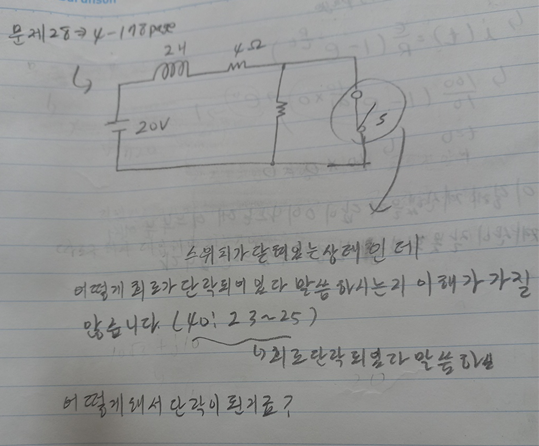 문제28⇒4-178page
2H
4Ω
20V
S
스위치가 닫혀있는상태 인데
어떻게 회로가 단락되어 있다 말씀 하시는지 이해가 가질
않습니다. (40: 23~25)
↳회로단락 되었다 말씀 하심
어떻게해서 단락이 된거죠?